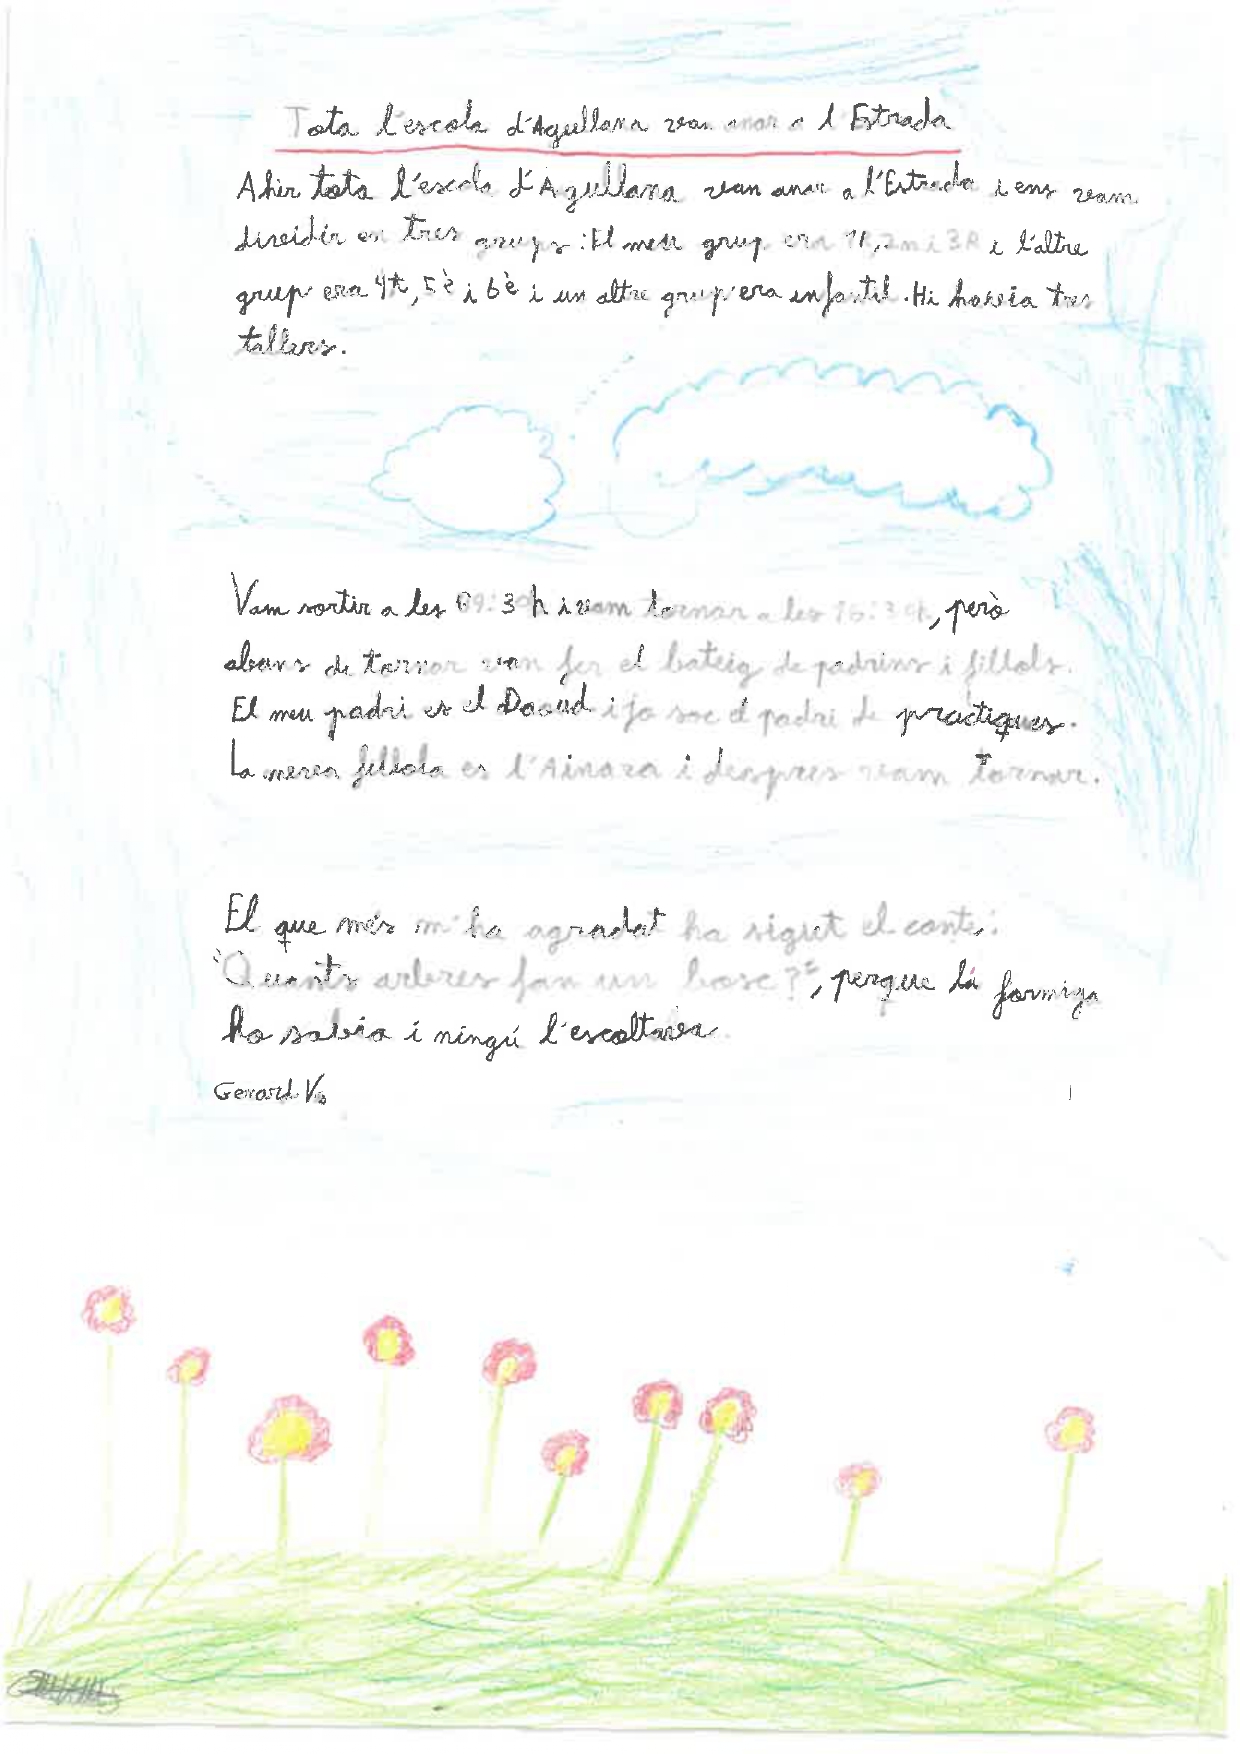 Tota l'escola d'Agullana van anar a l'Estrada
Ahir tota l'escola d'Agullana van anar a l'Estrada i ens vam
dividir en tres grups: El meu grup era 1r, 2n i 3r i l'altre
grup era 4t, 5è i 6è i un altre grup era infantil. Hi havia tres
tallers.
Vam sortir a les 09:30h i vam tornar a les 16:30h, però
abans de tornar van fer el bateig de padrins i fillols.
El meu padri es el Daoud i jo soc el padri de practiques.
La meva fillola es l'Ainara i despres vam tornar.
El que més m'ha agradat ha sigut el conte:
"Quants arbres fan un bosc?", perque la formiga
ho sabia i ningú l'escoltava.
Gerard V.